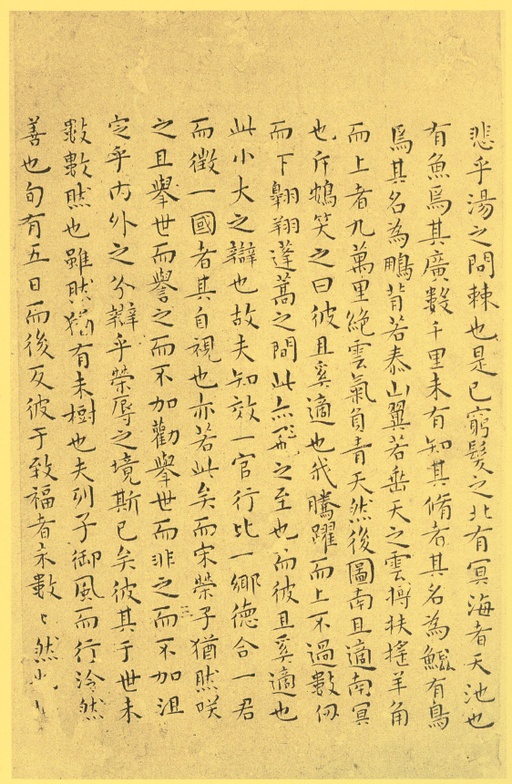 悲乎湯之問棘也是已窮髮之北有冥海者天池也
有魚焉其廣數千里未有知其脩者其名為鯤有鳥
焉其名為鵬背若泰山翼若垂天之雲搏扶搖羊角
而上者九萬里絕雲氣負青天然後圖南且適南冥
也斥鴳笑之曰彼且奚適也我騰躍而上不過數仞
而下翱翔蓬蒿之間此亦飛之至也而彼且奚適也
此小大之辯也故夫知效一官行比一鄉德合一君
而徵一國者其自視也亦若此矣而宋榮子猶然咲
之且舉世而譽之而不加勸舉世而非之而不加沮
定乎內外之分辯乎榮辱之境斯已矣彼其于世未
數數然也雖然猶有未樹也夫列子御風而行泠然
善也旬有五日而後反彼于致福者未數〻然